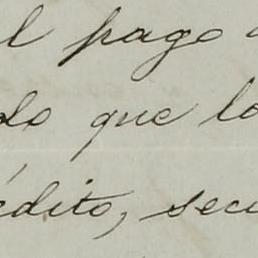 l pago
do que lo
édito, secu